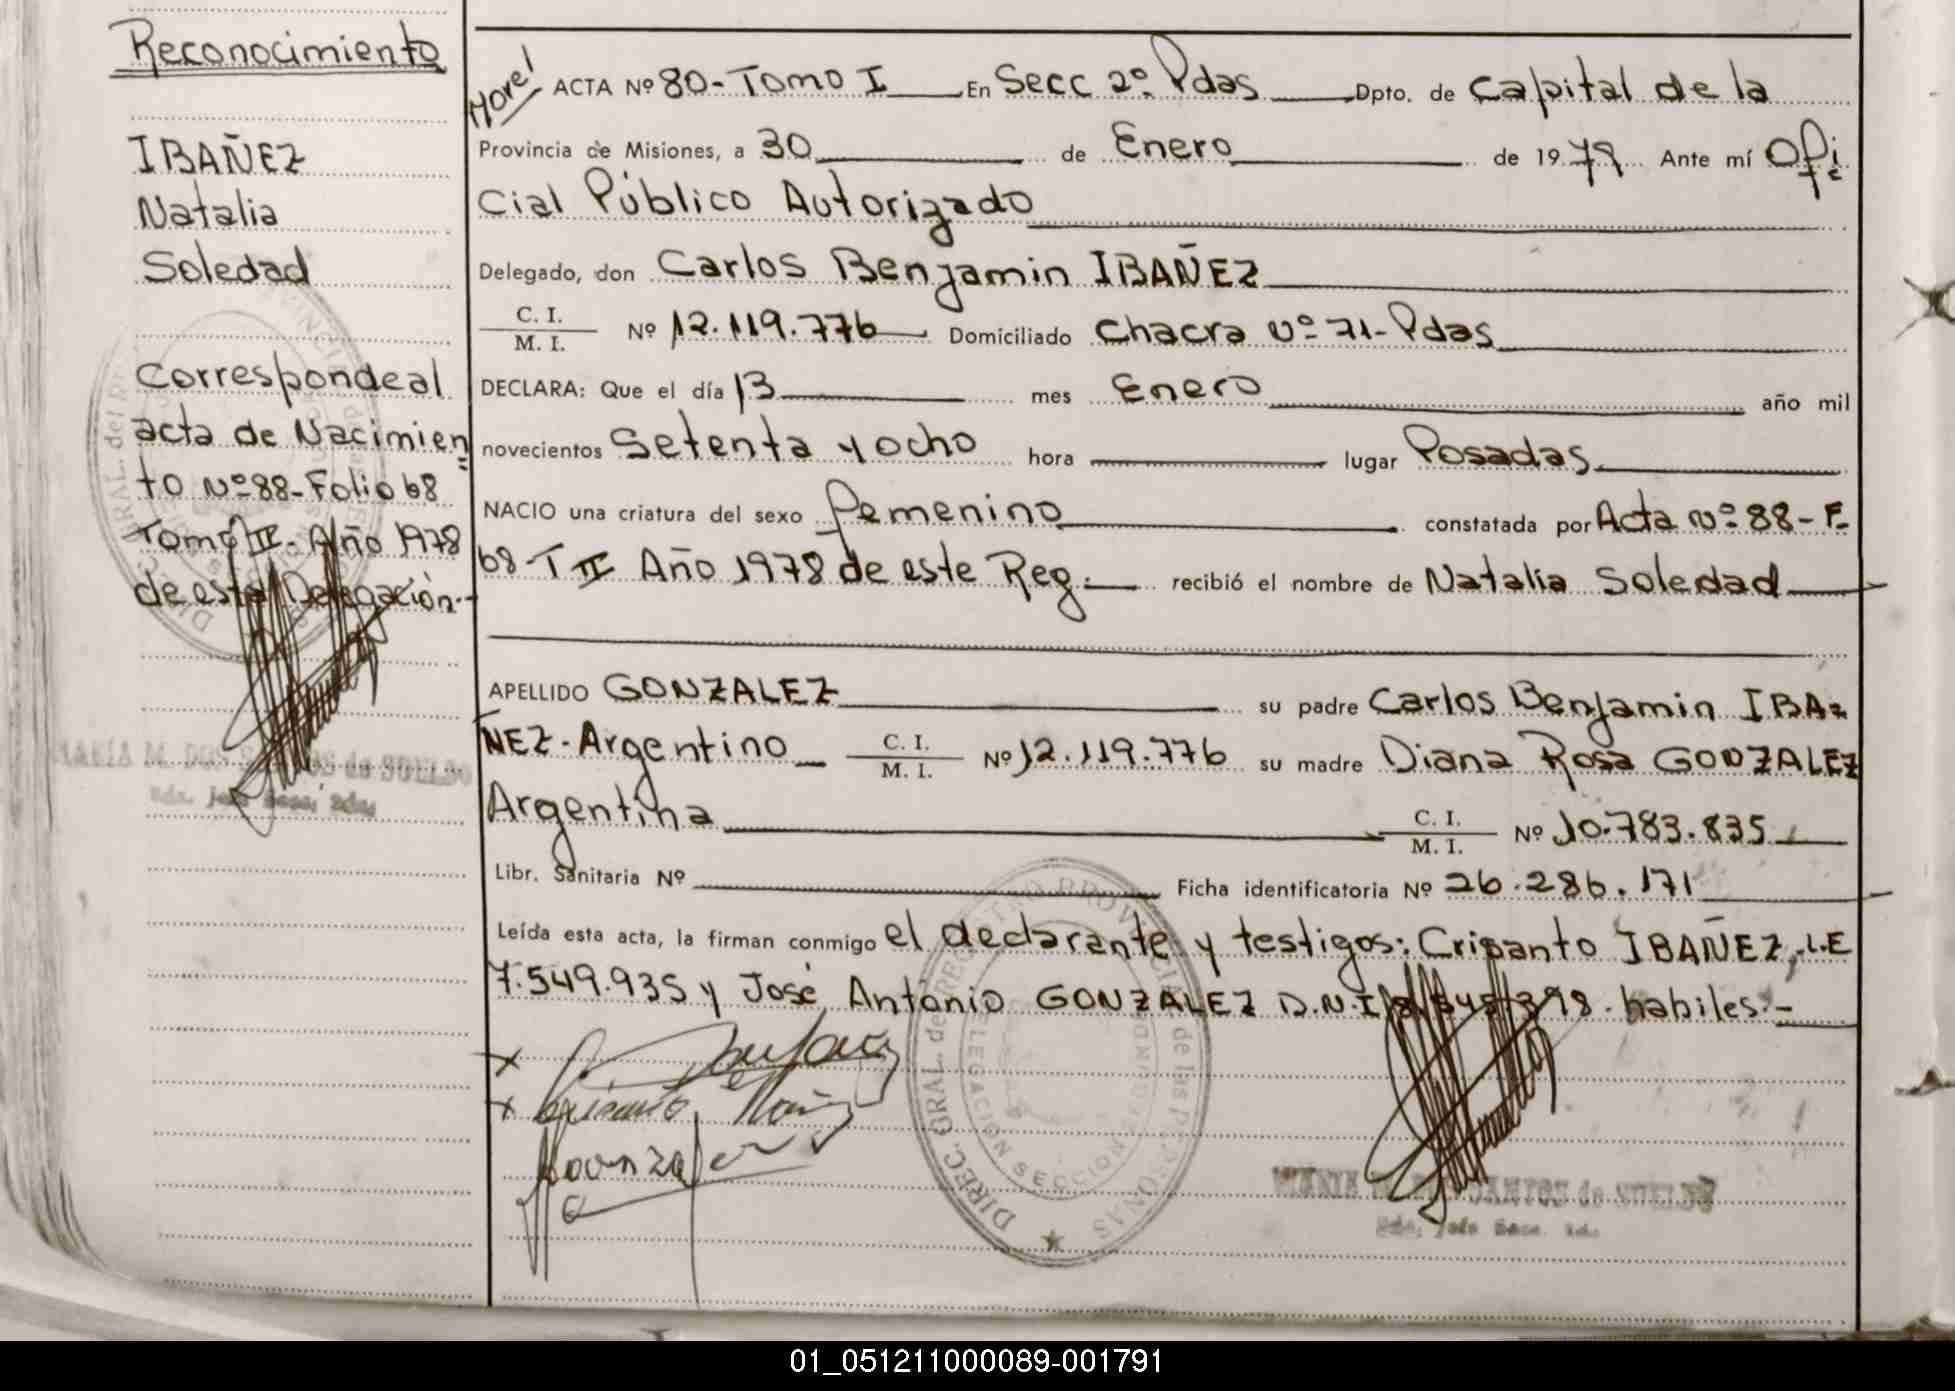 Reconocimiento
IBAÑEZ
Natalia
Soledad
Corresponde al
acta de Nacimien
to Nº 88-Folio 68
Tomo II- Año 1978
de esta Delegación.-
MARÍA M. DOS SANTOS de SUELDO
ACTA Nº 80-Tomo I En Secc 2º Pdas Dpto. de Capital de la
Provincia de Misiones, a 30 de Enero de 1979 Ante mí Ofi
cial Público Autorizado
Delegado, don Carlos Benjamin IBAÑEZ
C. I.
M. I. Nº 12.119.776 Domiciliado Chacra Nº 71-Pdas
DECLARA: Que el día 13 mes Enero año mil
novecientos Setenta y ocho hora lugar Posadas
NACIO una criatura del sexo femenino constatada por Acta Nº 88-F-
68-T II Año 1978 de este Reg. recibió el nombre de Natalia Soledad
APELLIDO GONZALEZ su padre Carlos Benjamin IBA=
ÑEZ-Argentino C. I.
M. I. Nº 12.119.776 su madre Diana Rosa GONZALEZ
Argentina C. I.
M. I. Nº 10.783.835
Libr. Sanitaria Nº Ficha identificatoria Nº 26.286.171
Leída esta acta, la firman conmigo el declarante y testigos: Crisanto IBAÑEZ, L.E
7.549.935 y José Antonio GONZALEZ D.N.I habiles.-
Crisanto Ibañez
Gonzalez
DIREC. GRAL. del REGISTRO PROVINCIAL de las PERSONAS
DELEGACION SECCION
MARIA SANTOS de SUELDO
01_051211000089-001791